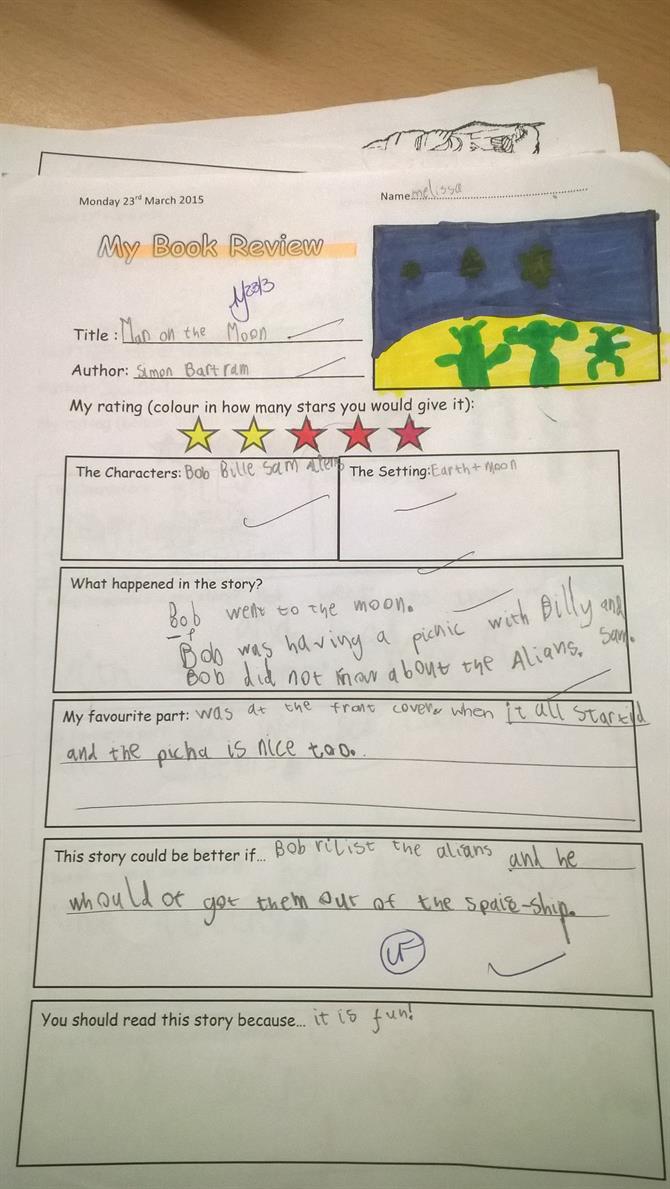 Monday 23rd March 2015
Name melissa
My Book Review
23/3
Title : Man on the Moon
Author: Simon Bartram
My rating (colour in how many stars you would give it):
The Characters: Bob Bille Sam Aliens
The Setting: Earth + Moon
What happened in the story?
Bob went to the moon.
Bob was having a picnic with Billy and
Sam.
Bob did not know about the Alians.
My favourite part: was at the front cover when it all startid
and the picha is nice too.
This story could be better if... Bob rilist the alians and he
whould of got them out of the spaie-ship.
You should read this story because... it is fun!